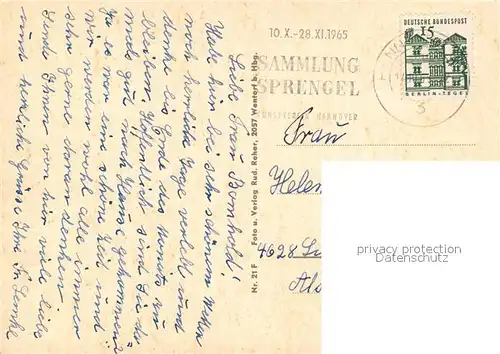 Liebe Frau Bomhald!
Habe hier bei sehr schönem Wetter
noch herrliche Tage verlebt und
denke bis Ende des Monats zu
bleiben. Hoffentlich sind Sie da
mals gut nach Hause gekommen?
Ja es war eine schöne Zeit und
wir werden wohl alle immer
sehr gerne daran denken.
Sende Ihnen von hier viele liebe
und herzliche Grüsse Ihre Fr. Lemke
Nr. 21 F Foto u. Verlag Rud. Reher, 2057 Wentorf b. Hbg.
10.X.-28.XI.1965
SAMMLUNG
SPRENGEL
HANNOVER
DEUTSCHE BUNDESPOST
15
BERLIN-TEGEL
3
Frau
Helen
4628
privacy protection
Datenschutz